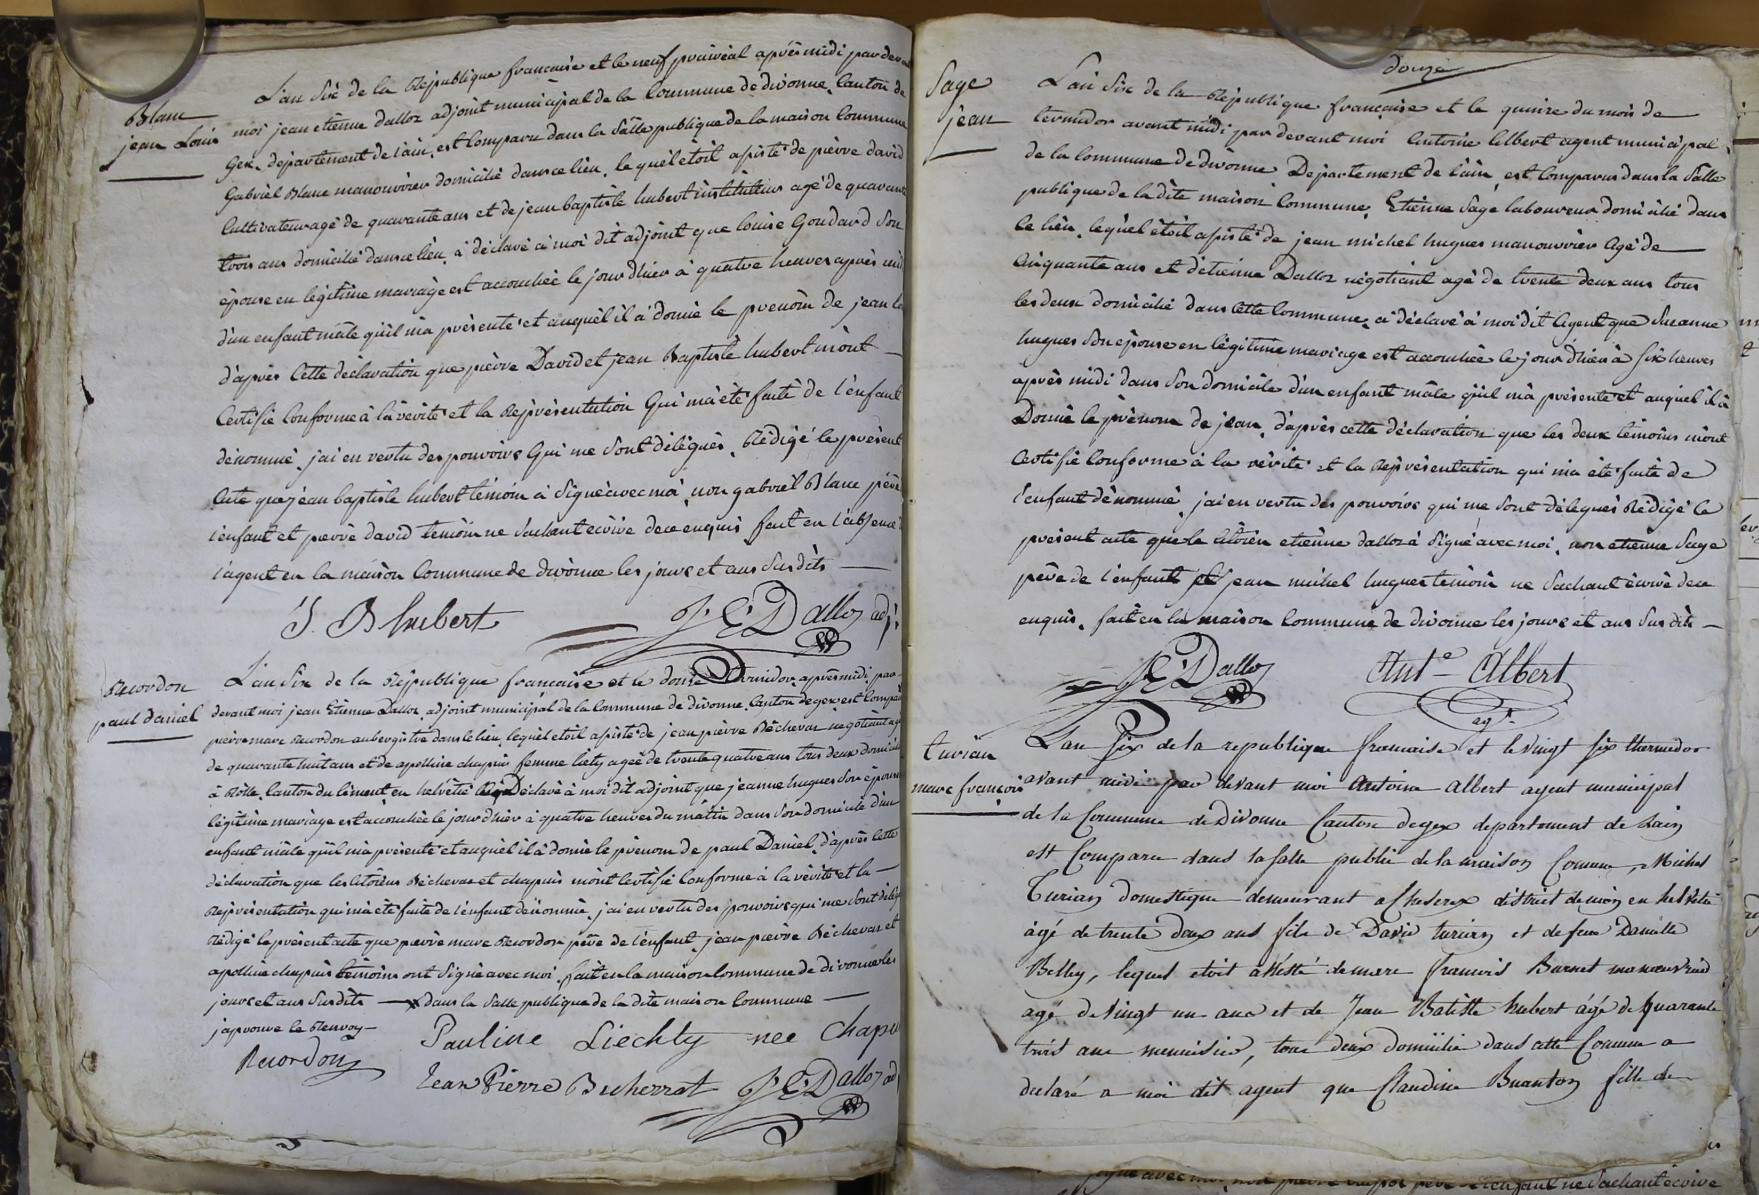 Blanc
jean Louis
L'an Six de la République francaise et le neuf prairéal après midi par devan
moi jean etienne dalloz adjoint municipal de la Commune de divonne, Canton de
Gex, département de l'ain, est Comparu dans la Salle publique de la maison Commune
Gabriel Blanc manouvrier domicilié dans ce lieu, le quel étoit assisté de pierre david
Cultivateur agé de quarante ans et de jean baptiste hubert instituteur agé de quarante
trois ans domicilié dans ce lieu, à déclaré à moi dit adjoint que louise Goudard Son
épouse en légitime mariage est accouchée le jour d'hier à quatre heures après midi
d'un enfant mâle qu'il m'a présenté et auquel il a donné le prenom de jean lo
d'après Cette déclaration que pierre David et jean Baptiste hubert m'ont
Certifié Conforme à la vérité et la Représentation Qui m'a été faite de l'enfant
dénommé, j'ai en vertu des pouvoirs Qui me Sont délégués, Rédigé le présent
acte que jean baptiste hubert témoin à Signé avec moi, non gabriel Blanc père
l'enfant et pierre david témoin ne Sachant écrire de ce enquis, fait en l'absence
l'agent en la maison Commune de divonne les jours et ans Susdits
J. B hubert J. E. Dalloz adj.
Recordon
paul daniel
L'an Six de la République francaise et le douze Termidor après midi, par
devant moi jean Etienne Dalloz, adjoint municipal de la Commune de divonne, Canton de gex est Comparu
pierre marc Recordon aubergiste dans le lieu, lequel étoit assisté de jean pierre Bécherat negotiant agé
de quarante huit ans et de apolline chapuis femme liety agée de trente quatre ans tous deux domicilié
à Rolle, Canton du lément, en helvétie Déclaré à moi dit adjoint que jeanne hugues Son épouse
légitime mariage est accouchée le jour d'hier à quatre heures du matin dans Son domicile d'un
enfant mâle qu'il m'a présenté et auquel il à donné le prénom de paul Daniel, d'après Cette
déclaration que les Citoiens Bécherat et chapuis m'ont Certifié Conforme à la vérité et la
Représentation qui m'a été faite de l'enfant dénommé, j'ai en vertu des pouvoirs qui me Sont délég
Rédigé le présent acte que pierre marc Recordon père de l'enfant, jean pierre Bécherat et
apolline chapuis témoins ont Signé avec moi, fait en la maison Commune de divonne les
jours et ans Susdits — x dans la Salle publique de la dite maison Commune
j'aprouve le Renvoy
Recordon Pauline Liechty nee Chapu
Jean Pierre Becherrat J. E. Dalloz ad
douze
Sage
jean
L'an Six de la République française et le quinze du mois de
termidor avant midi par devant moi Antoine Albert agent municipal
de la Commune de divonne Département de l'ain, est Comparu dans la Salle
publique de la dite maison Commune, Etienne Sage laboureur domicilié dans
ce lieu, lequel étoit assisté de jean michel hugues manouvrier Agé de
Cinquante ans et d'étienne Dalloz négotiant agé de trente deux ans tous
les deux domicilié dans Cette Commune, a déclaré à moi dit Agent que Suzanne
hugues Son épouse en légitime mariage est accouchée le jour d'hier à Six heures
après midi dans Son domicile d'un enfant mâle qu'il m'a présenté et auquel il à
Donné le prénom de jean, d'après cette déclaration que les deux témoins m'ont
Certifié Conforme à la vérité et la Représentation qui m'a été faite de
l'enfant dénommé, j'ai en vertu des pouvoirs qui me Sont délégués Rédigé le
présent acte que le Citoien etienne dalloz à Signé avec moi, non etienne Sage
père de l'enfant jean michel hugues témoin ne Sachant écrire de ce
enquis, fait en la maison Commune de divonne les jours et ans Susdits
J E. Dalloz Ant.e Albert
agt.
turian
marc françois
L'an Six de la republique francaise et le vingt Six thermidor
avant midi par devant moi Antoine Albert agent municipal
de la Commune de Divonne Canton de gex departement de Lain
est Comparu dans la salle public de la maison Comune, Michel
Turian domestique demeurant a Cheserex district de nion en helvétie
âgé de trente Deux ans fils de David turian et de feue Danielle
Belley, lequel etoit assisté de marc francois Barnet manouvrié
agé de vingt un ans et de Jean Batiste hubert âgé de quarante
trois ans menuisié, tous deux domicilié dans cette Comune a
declaré a moi dit agent que Claudine Buanton fille de